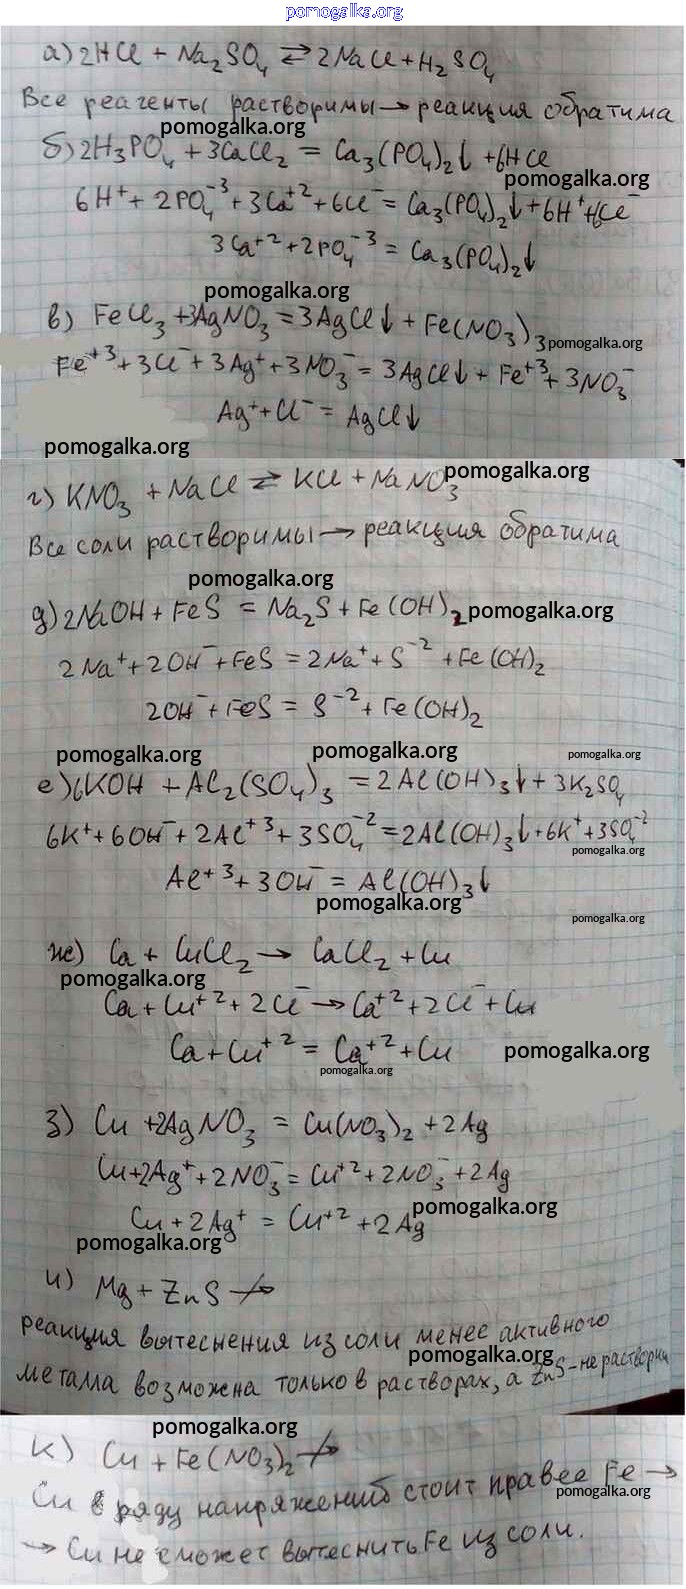 pomogalka.org
а) 2HCl + Na₂SO₄ ⇄ 2NaCl + H₂SO₄
Все реагенты растворимы → реакция обратима
pomogalka.org
б) 2H₃PO₄ + 3CaCl₂ = Ca₃(PO₄)₂↓ + 6HCl
pomogalka.org
6H⁺ + 2PO₄⁻³ + 3Ca⁺² + 6Cl⁻ = Ca₃(PO₄)₂↓ + 6H⁺ + 6Cl⁻
3Ca⁺² + 2PO₄⁻³ = Ca₃(PO₄)₂↓
pomogalka.org
в) FeCl₃ + 3AgNO₃ = 3AgCl↓ + Fe(NO₃)₃
pomogalka.org
Fe⁺³ + 3Cl⁻ + 3Ag⁺ + 3NO₃⁻ = 3AgCl↓ + Fe⁺³ + 3NO₃⁻
Ag⁺ + Cl⁻ = AgCl↓
pomogalka.org
pomogalka.org
г) KNO₃ + NaCl ⇄ KCl + NaNO₃
Все соли растворимы → реакция обратима
pomogalka.org
д) 2NaOH + FeS = Na₂S + Fe(OH)₂
pomogalka.org
2Na⁺ + 2OH⁻ + FeS = 2Na⁺ + S⁻² + Fe(OH)₂
2OH⁻ + FeS = S⁻² + Fe(OH)₂
pomogalka.org pomogalka.org pomogalka.org
е) 6KOH + Al₂(SO₄)₃ = 2Al(OH)₃↓ + 3K₂SO₄
6K⁺ + 6OH⁻ + 2Al⁺³ + 3SO₄⁻² = 2Al(OH)₃↓ + 6K⁺ + 3SO₄⁻²
pomogalka.org
Al⁺³ + 3OH⁻ = Al(OH)₃↓
pomogalka.org pomogalka.org
ж) Ca + CuCl₂ → CaCl₂ + Cu
pomogalka.org
Ca + Cu⁺² + 2Cl⁻ → Ca⁺² + 2Cl⁻ + Cu
Ca + Cu⁺² = Ca⁺² + Cu
pomogalka.org
pomogalka.org
з) Cu + 2AgNO₃ = Cu(NO₃)₂ + 2Ag
Cu + 2Ag⁺ + 2NO₃⁻ = Cu⁺² + 2NO₃⁻ + 2Ag
pomogalka.org
Cu + 2Ag⁺ = Cu⁺² + 2Ag
pomogalka.org
и) Mg + ZnS ↛
реакция вытеснения из соли менее активного
pomogalka.org
металла возможна только в растворах, а ZnS - не растворим
pomogalka.org
к) Cu + Fe(NO₃)₂ ↛
Cu в ряду напряжений стоит правее Fe →
pomogalka.org
→ Cu не сможет вытеснить Fe из соли.